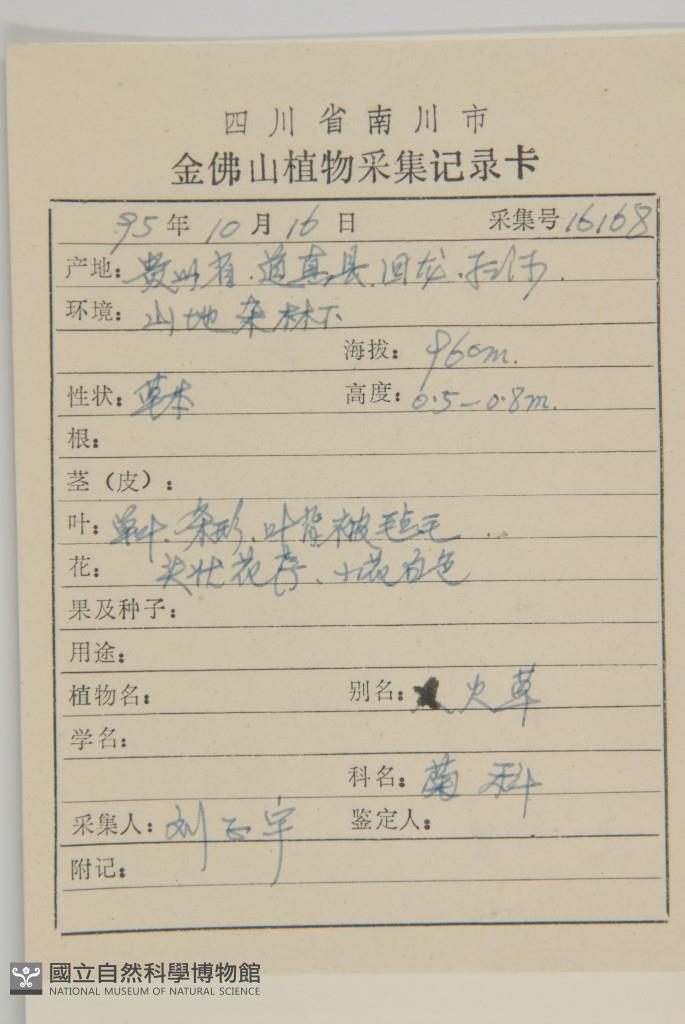 四川省南川市
金佛山植物采集记录卡
95年10月16日 采集号16168
产地：贵州省.道真县.回龙.
环境：山地杂林下
海拔：960m.
性状：草本 高度：0.5-0.8m.
根：
茎（皮）：
叶：单叶、条形、叶背被毡毛
花：头状花序、小花白色
果及种子：
用途：
植物名： 别名：火草
学名：
科名：菊科
采集人：刘正宇 鉴定人：
附记：
國立自然科學博物館
NATIONAL MUSEUM OF NATURAL SCIENCE